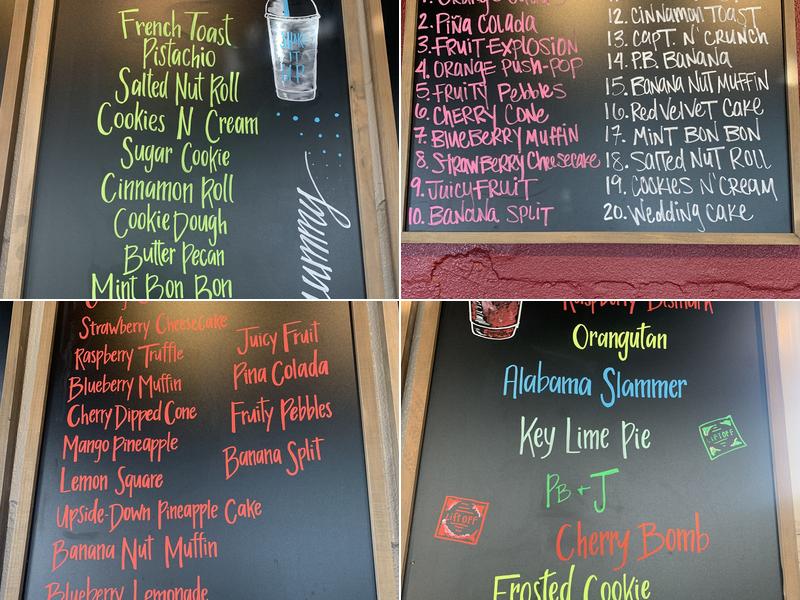 French Toast
Pistachio
Salted Nut Roll
Cookies N Cream
Sugar Cookie
Cinnamon Roll
Cookie Dough
Butter Pecan
Mint Bon Bon
SHAKE
IT
UP
yummy
2. Piña Colada
3. FRUIT EXPLOSION
4. ORANGE PUSH-POP
5. FRUITY Pebbles
6. CHERRY CONe
7. BLUeBeRRY MuffiN
8. STRAWBERRY Cheesecake
9. JUICYFRUIT
10. BANANA SPLIT
12. CiNNAMON TOAST
13. CAPT. N' CRUNCH
14. P.B. BANANA
15. BANANA NUT MUFFIN
16. Red VelVeT CAKe
17. MiNT BON BON
18. SAlTed NUT ROLL
19. COOKIES N' CREAM
20. Wedding CAKe
Strawberry Cheesecake
Raspberry Truffle
Blueberry Muffin
Cherry Dipped Cone
Mango Pineapple
Lemon Square
Upside-Down Pineapple Cake
Banana Nut Muffin
Blueberry Lemonade
Juicy Fruit
Pina Colada
Fruity Pebbles
Banana Split
Raspberry Bismark
Orangutan
Alabama Slammer
Key Lime Pie
LIFT OFF
PB + J
LIFT OFF
Cherry Bomb
Frosted Cookie